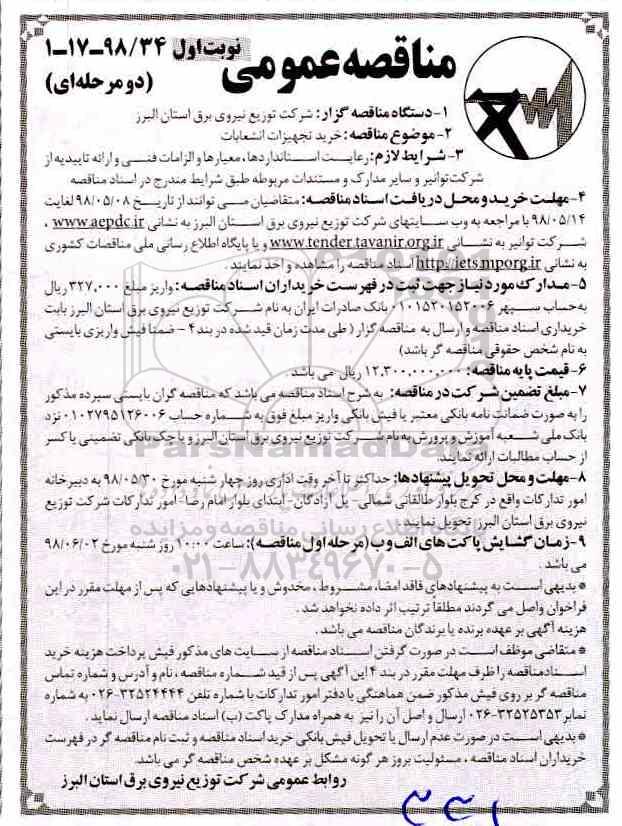 مناقصه عمومی
نوبت اول ۹۸/۳۴-۱۷-۱
(دو مرحله ای)
۱- دستگاه مناقصه گزار: شرکت توزیع نیروی برق استان البرز
۲- موضوع مناقصه: خرید تجهیزات انشعابات
۳- شرایط لازم: رعایت استانداردها، معیارها و الزامات فنی و ارائه تاییدیه از
شرکت توانیر و سایر مدارک و مستندات مربوطه طبق شرایط مندرج در اسناد مناقصه
۴- مهلت خرید و محل دریافت اسناد مناقصه: متقاضیان می توانند از تاریخ ۹۸/۰۵/۰۸ لغایت
۹۸/۰۵/۱۴ با مراجعه به وب سایتهای شرکت توزیع نیروی برق استان البرز به نشانی www.aepdc.ir ،
شرکت توانیر به نشانی www.tender.tavanir.org.ir و یا پایگاه اطلاع رسانی ملی مناقصات کشوری
به نشانی http://iets.mporg.ir اسناد مناقصه را مشاهده و اخذ نمایند.
۵- مدارک مورد نیاز جهت ثبت در فهرست خریداران اسناد مناقصه: واریز مبلغ ۳۲۷,۰۰۰ ریال
به حساب سپهر ۰۱۰۱۵۲۰۱۵۲۰۰۶ بانک صادرات ایران به نام شرکت توزیع نیروی برق استان البرز بابت
خریداری اسناد مناقصه و ارسال به مناقصه گزار (طی مدت زمان قید شده در بند ۴ - ضمنا فیش واریزی بایستی
به نام شخص حقوقی مناقصه گر باشد)
۶- قیمت پایه مناقصه: ۱۲,۳۰۰,۰۰۰,۰۰۰ ریال می باشد.
۷- مبلغ تضمین شرکت در مناقصه: به شرح اسناد مناقصه می باشد که مناقصه گران بایستی سپرده مذکور
را به صورت ضمانت نامه بانکی معتبر یا فیش بانکی واریز مبلغ فوق به شماره حساب ۰۱۰۲۷۹۵۱۲۶۰۰۶ نزد
بانک ملی شعبه آموزش و پرورش به نام شرکت توزیع نیروی برق استان البرز و یا چک بانکی تضمینی یا کسر
از حساب مطالبات ارائه نمایند.
۸- مهلت و محل تحویل پیشنهادها: حداکثر تا آخر وقت اداری روز چهار شنبه مورخ ۹۸/۰۵/۳۰ به دبیرخانه
امور تدارکات واقع در کرج بلوار طالقانی شمالی- پل آزادگان- ابتدای بلوار امام رضا- امور تدارکات شرکت توزیع
نیروی برق استان البرز تحویل نمایند.
۹- زمان گشایش پاکت های الف و ب (مرحله اول مناقصه): ساعت ۱۰:۰۰ روز شنبه مورخ ۹۸/۰۶/۰۲
می باشد.
* بدیهی است به پیشنهادهای فاقد امضا، مشروط، مخدوش و یا پیشنهادهایی که پس از مهلت مقرر در این
فراخوان واصل می گردند مطلقاً ترتیب اثر داده نخواهد شد.
هزینه آگهی بر عهده برنده یا برندگان مناقصه می باشد.
* متقاضی موظف است در صورت گرفتن اسناد مناقصه از سایت های مذکور فیش پرداخت هزینه خرید
اسناد مناقصه را ظرف مهلت مقرر در بند ۴ این آگهی پس از قید شماره مناقصه، نام و آدرس و شماره تماس
مناقصه گر بر روی فیش مذکور ضمن هماهنگی با دفتر امور تدارکات با شماره تلفن ۳۲۵۲۴۴۴۴-۰۲۶ به شماره
نمابر ۳۲۵۲۵۳۵۳-۰۲۶ ارسال و اصل آن را نیز به همراه مدارک پاکت (ب) اسناد مناقصه ارسال نماید.
* بدیهی است در صورت عدم ارسال یا تحویل فیش بانکی خرید اسناد مناقصه و ثبت نام مناقصه گر در فهرست
خریداران اسناد مناقصه، مسئولیت بروز هر گونه مشکل بر عهده شخص مناقصه گر می باشد.
روابط عمومی شرکت توزیع نیروی برق استان البرز
ParsNamadData
رسانی مناقصه و مزایده
۰۲۱-۸۸۳۴۹۶۷۰-۵